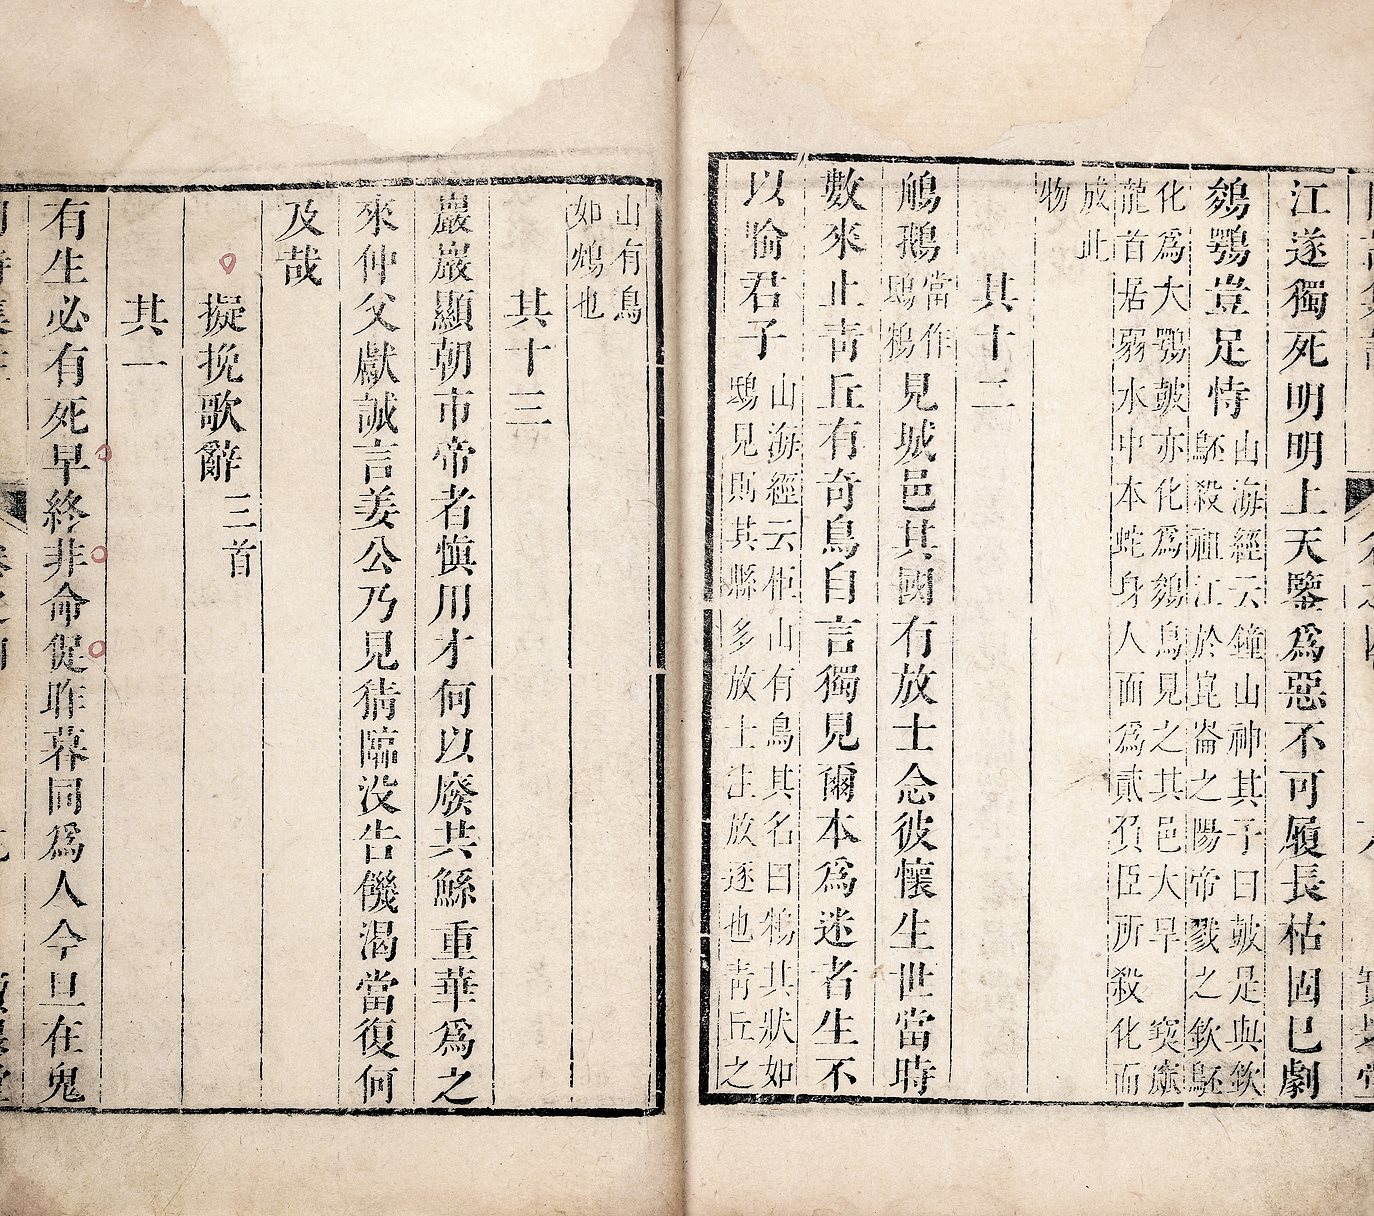 江遂獨死明明上天鑒爲惡不可履長枯固已劇
鵕鶚豈足恃
山海經云鐘山神其子曰鼓是與欽
䲹殺祖江於崑崙之陽帝戮之欽䲹
化爲大鶚鼓亦化爲鵕鳥見之其邑大旱 窫窳
龍首居弱水中本蛇身人面爲貳負臣所殺化而
成此
物
其十二
鵃鵝
當作
鴟鴸
見城邑其國有放士念彼懷生世當時
數來止靑丘有奇鳥自言獨見爾本爲迷者生不
以喻君子
山海經云柜山有鳥其名曰鴸其狀如
鴟見則其縣多放士注放逐也靑丘之
山有鳥
如鳩也
其十三
巖巖顯朝市帝者愼用才何以廢共鯀重華爲之
來仲父獻誠言姜公乃見猜臨没告饑渴當復何
及哉
擬挽歌辭三首
其一
有生必有死早終非命促昨暮同爲人今旦在鬼